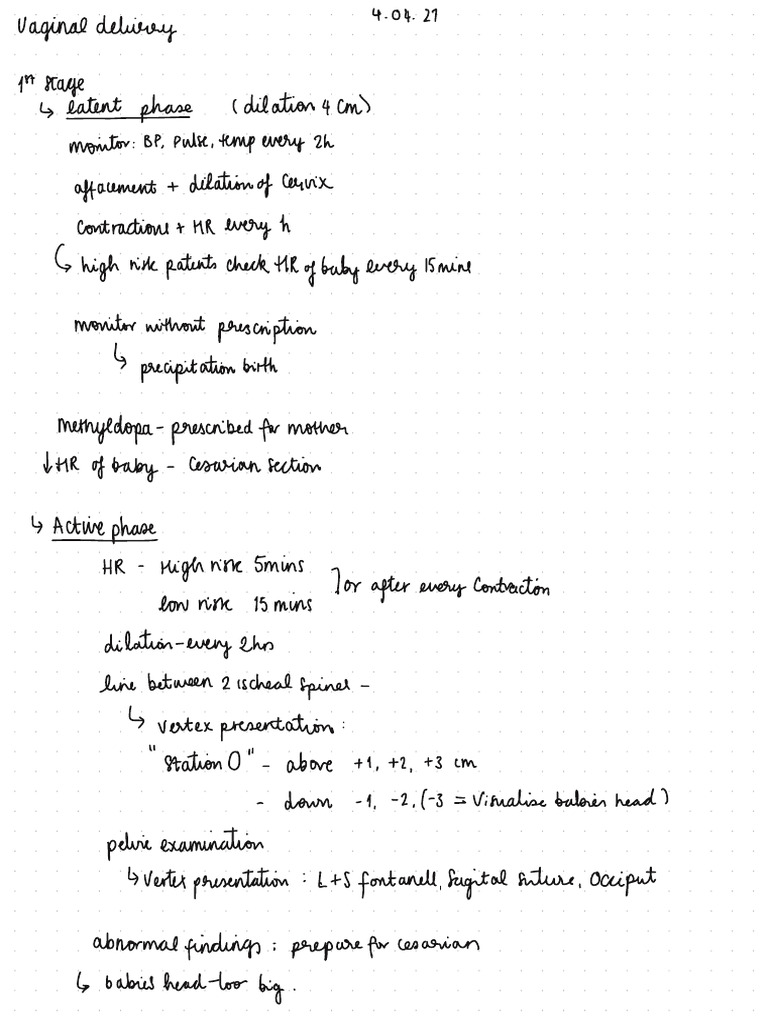 4.04.21
Vaginal delivery
1st stage
↳ latent phase (dilation 4 cm)
monitor: BP, pulse, temp every 2h
affacement + dilation of cervix
contractions + HR every h
↳ high risk patents check HR of baby every 15 mins
monitor without prescription
↳ precipitation birth
methyldopa - prescribed for mother
↓ HR of baby - cesarian section
↳ Active phase
HR - High risk 5mins
low risk 15 mins ] or after every contraction
dilation - every 2hrs
line between 2 ischeal spines -
↳ vertex presentation:
"Station 0" - above +1, +2, +3 cm
- down -1, -2, (-3 = visualise babies head)
pelvic examination
↳ vertex presentation: L+S fontanell, sagital suture, occiput
abnormal findings: prepare for cesarian
↳ babies head - too big.